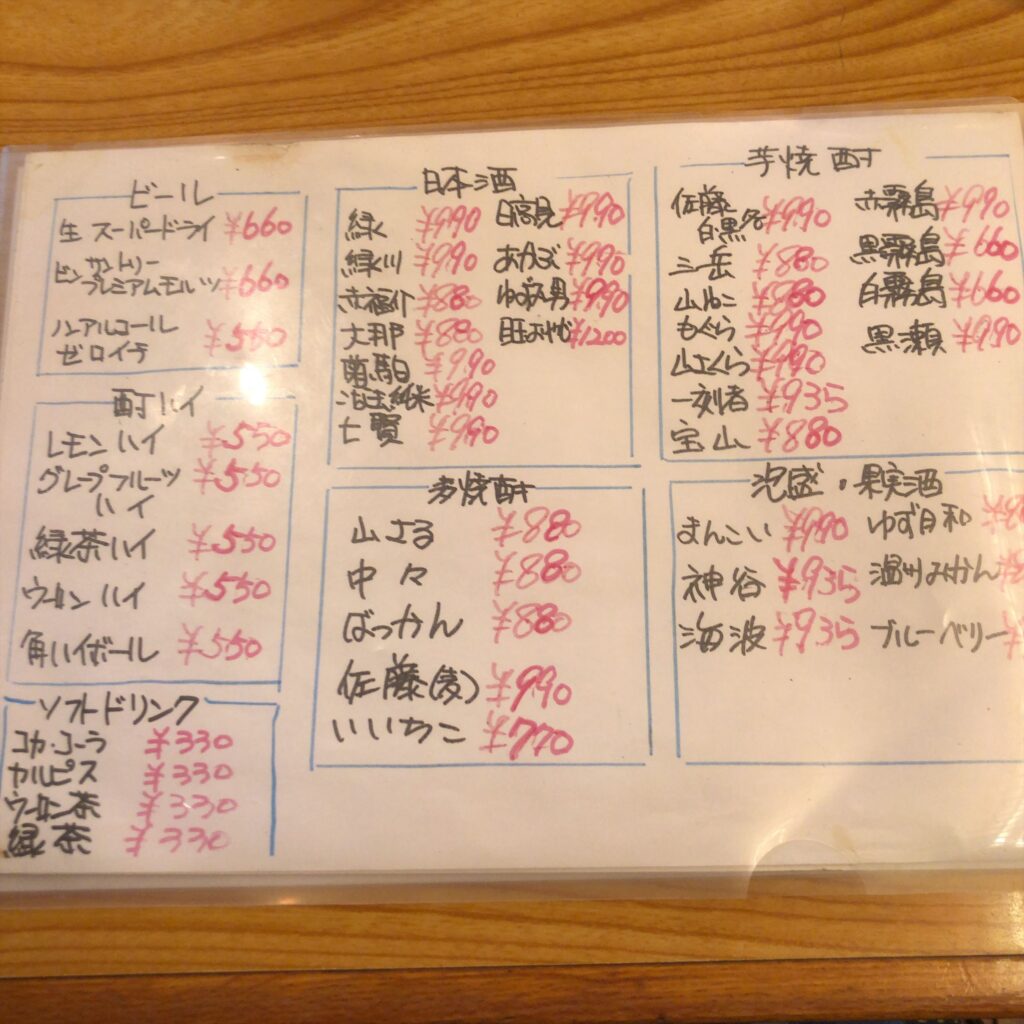 ビール
生 スーパードライ ¥660
ビン サントリー
プレミアムモルツ ¥660
ノンアルコール
ゼロイチ ¥550
酎ハイ
レモンハイ ¥550
グレープフルーツ
ハイ ¥550
緑茶ハイ ¥550
ウーロンハイ ¥550
角ハイボール ¥550
ソフトドリンク
コカ・コーラ ¥330
カルピス ¥330
ウーロン茶 ¥330
緑茶 ¥330
日本酒
緑 ¥990
緑川 ¥990
¥880
大那 ¥880
菊駒 ¥990
純米 ¥990
七賢 ¥990
日高見 ¥990
あかぶ ¥990
男 ¥990
¥1200
麦焼酎
山さる ¥880
中々 ¥880
ばっかん ¥880
佐藤(麦) ¥990
いいちこ ¥770
芋焼酎
佐藤
白黒 ¥990
三岳 ¥880
山ねこ ¥880
もぐら ¥990
山ざくら ¥990
一刻者 ¥935
宝山 ¥880
赤霧島 ¥990
黒霧島 ¥660
白霧島 ¥660
黒瀬 ¥990
泡盛・果実酒
まんこい ¥990
神谷 ¥935
海波 ¥935
ゆず日和
温州みかん
ブルーベリー